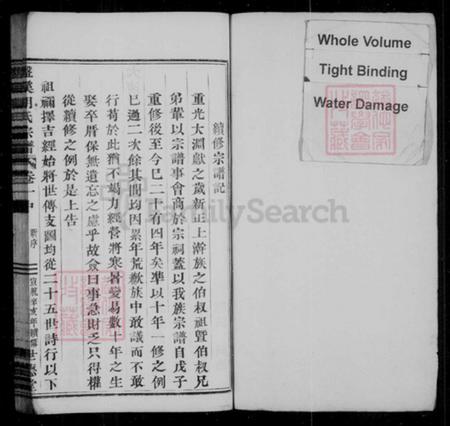 續修宗譜記
重光大淵獻之歲新正上澣族之伯叔祖暨伯叔兄
弟輩以宗譜事會商於宗祠蓋以我族宗譜自戊子
重修後至今已二十有四年矣準以十年一修之例
已過二次餘其間均因累年荒歉族中敢議而不敢
行苟於此猶不竭力經營將寒暑變易數十年之生
娶卒厝保無遺忘之虞乎故僉曰事急財乏只得權
從續修之例於是上告
祖禰擇吉經始將世傳支圖均從二十五世詩行以下
胡氏宗譜 卷一中 新序 宣統辛亥年續修
Whole Volume
Tight Binding
Water Damage
FamilySearch